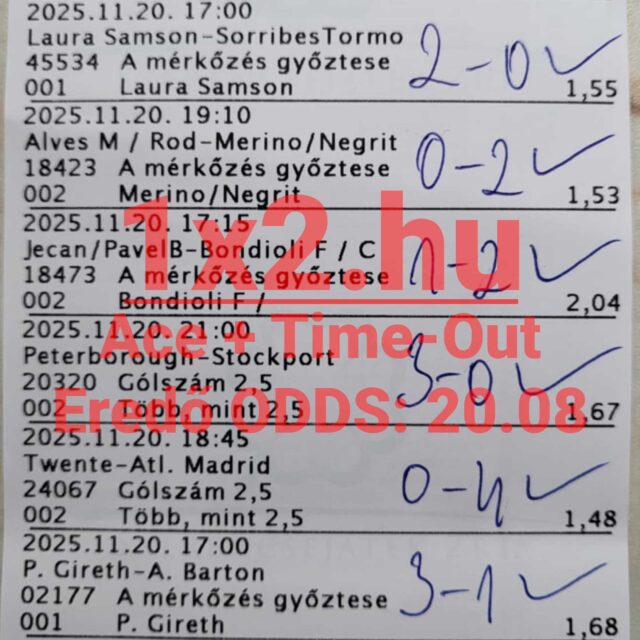 2025.11.20. 17:00
Laura Samson-SorribesTormo
45534 A mérkőzés győztese
2-0 ✓
001 Laura Samson 1,55
2025.11.20. 19:10
Alves M / Rod-Merino/Negrit
18423 A mérkőzés győztese
0-2 ✓
002 Merino/Negrit 1,53
2025.11.20. 17:15
Jecan/PavelB-Bondioli F / C
18473 A mérkőzés győztese
1-2 ✓
002 Bondioli F / 2,04
2025.11.20. 21:00
Peterborough-Stockport
20320 Gólszám 2,5
3-0 ✓
002 Több, mint 2,5 1,67
2025.11.20. 18:45
Twente-Atl. Madrid
24067 Gólszám 2,5
0-4 ✓
002 Több, mint 2,5 1,48
2025.11.20. 17:00
P. Gireth-A. Barton
02177 A mérkőzés győztese
3-1 ✓
001 P. Gireth 1,68
1x2.hu
Ace + Time-Out
Eredő ODDS: 20.08